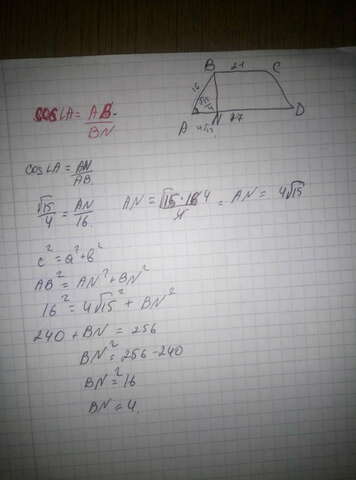 B 21 C
16
A 4√15 N 27 D
cos∠A = AB / BN
cos∠A = AN / AB
√15 / 4 = AN / 16 AN = √15 · 16 4 / 4 = AN = 4√15
c² = a² + b²
AB² = AN² + BN²
16² = 4√15² + BN²
240 + BN = 256
BN² = 256 - 240
BN² = 16
BN = 4.